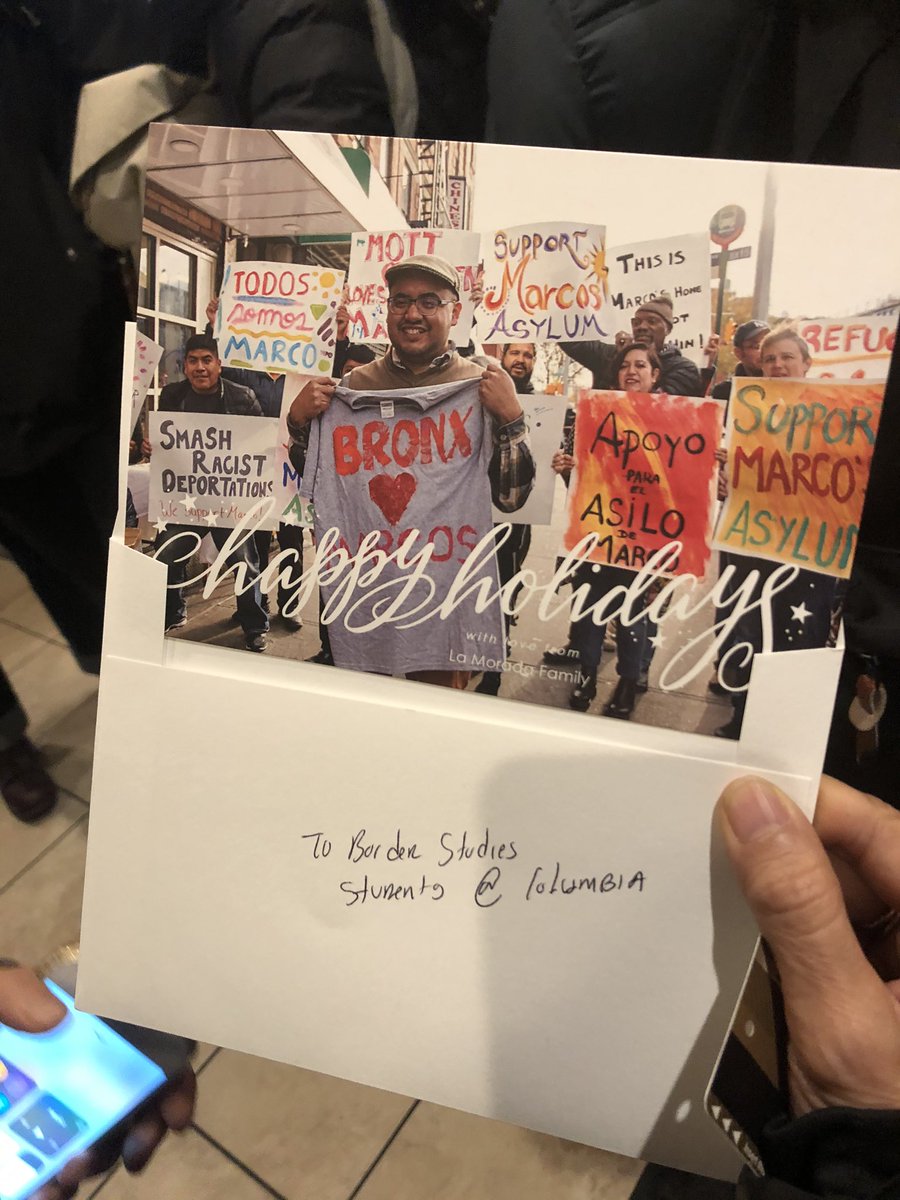 TODOS
somos
MARCO
MOTT
LOVES
SUPPORT
Marcos'
ASYLUM
THIS IS
MARCO'S HOME
CHINESE
SMASH
RACIST
DEPORTATIONS
We Support Marco!
BRONX
Apoyo
PARA
EL
ASILO
DE
MARCO
SUPPORT
MARCO'S
ASYLUM
happy holidays
with love from
La Morada Family
To Border Studies
Students @ Columbia